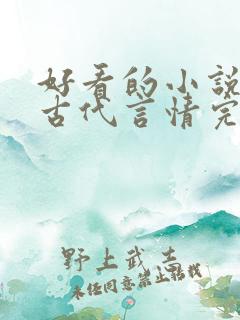 好看的小说
古代言情完
野上武志
未经同意禁止转载